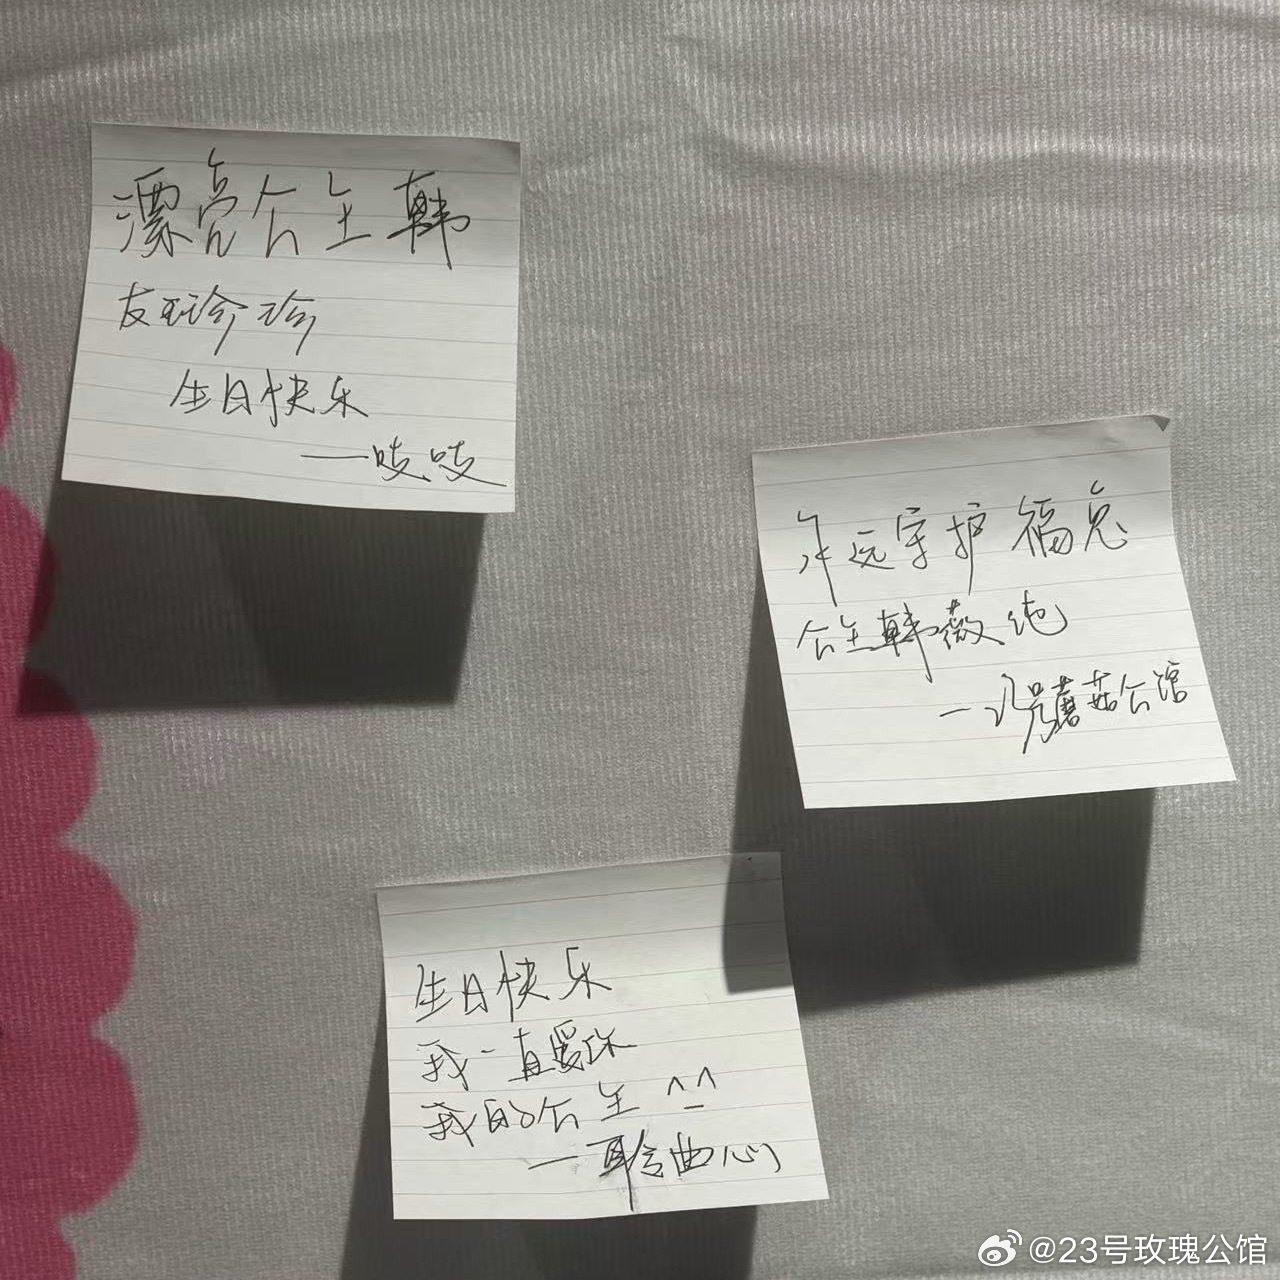 漂亮公主韩
友珍珍
生日快乐
——吱吱
永远守护福兔
公主韩薇纯
—号蘑菇公馆
生日快乐
我一直爱你
我的公主^_^
—聆曲心
@23号玫瑰公馆